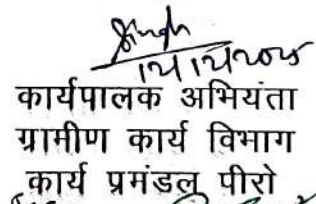 Singh
कार्यपालक अभियंता
ग्रामीण कार्य विभाग
कार्य प्रमंडल पीरो